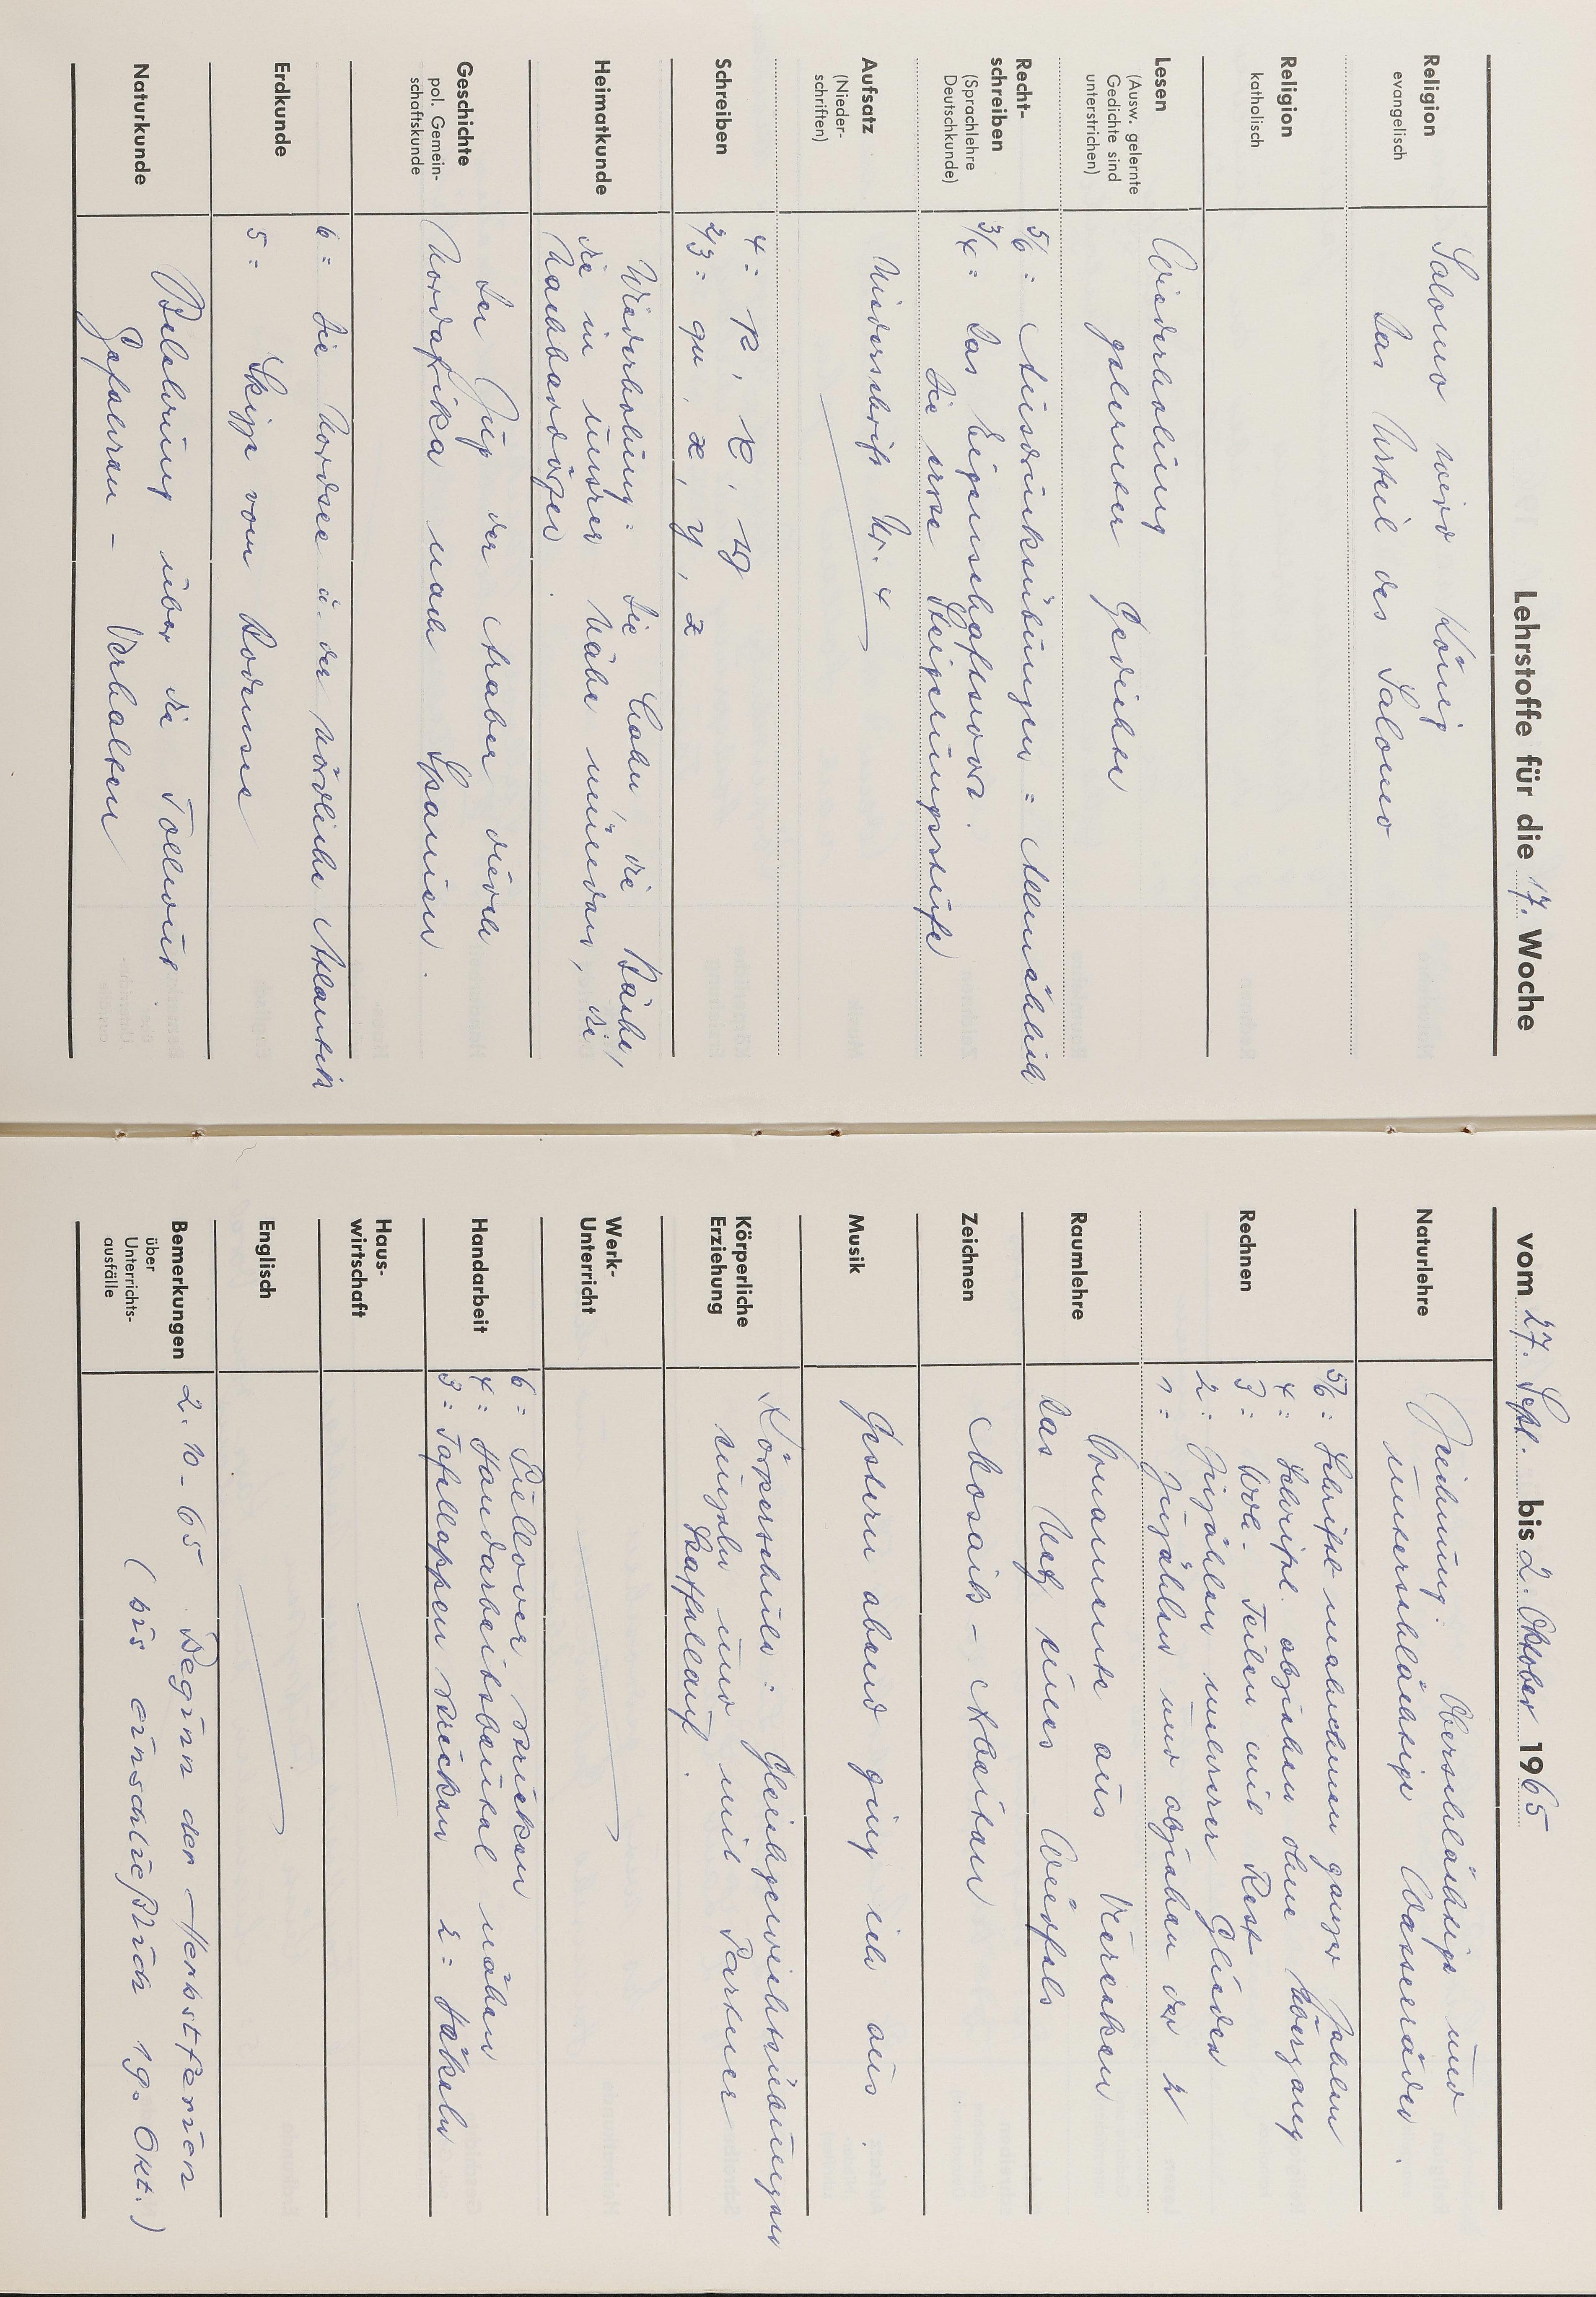 Lehrstoffe für die 17. Woche
Religion
evangelisch
Salomo wird König
Das Urteil des Salomo
Religion
katholisch
Lesen
(Ausw. gelernte
Gedichte sind
unterstrichen)
Wiederholung
gelernter Gedichte
Recht-
schreiben
(Sprachlehre
Deutschkunde)
5/6: Ausdrucksübungen: Allmählich
3/4: Das Eigenschaftswort.
Die erste Steigerungsstufe
Aufsatz
(Nieder-
schriften)
Niederschrift Nr. 4
Schreiben
4:
2/3: qu, x, y, z
Heimatkunde
Wiederholung: Die Lahn, die Bäche,
die in unsrer Nähe münden, die
Nachbardörfer.
Geschichte
pol. Gemein-
schaftskunde
Der Zug der Araber durch
Nordafrika nach Spanien.
Erdkunde
6: Die Nordsee u. der nördliche Atlantik
5: Skizze vom Bodensee
Naturkunde
Belehrung über die Tollwut
Gefahren - Verhalten
vom 27. Sept. bis 2. Oktober 1965
Naturlehre
Zeichnung: Oberschlächtige und
unterschlächtige Wasserräder.
Rechnen
5/6: Schriftl. malnehmen ganzer Zahlen
4: Schriftl. abziehen ohne Übergang
3: Wdh. Teilen mit Rest
2: Zuzählen mehrerer Glieder
1: Zuzählen und abziehen der 2
Raumlehre
Ornamente aus Vierecken
Das Netz eines Würfels
Zeichnen
Mosaik-Arbeiten
Musik
Gestern abend ging ich aus.
Körperliche
Erziehung
Körperschule: Gleichgewichtsübungen
einzeln und mit Partner
Staffellauf.
Werk-
Unterricht
Handarbeit
6: Pullover stricken
4: Handarbeitsbeutel nähen
3: Tafellappen stricken 2: Häkeln
Haus-
wirtschaft
Englisch
Bemerkungen
über
Unterrichts-
ausfälle
2.10.65 Beginn der Herbstferien
(bis einschließlich 19. Okt.)